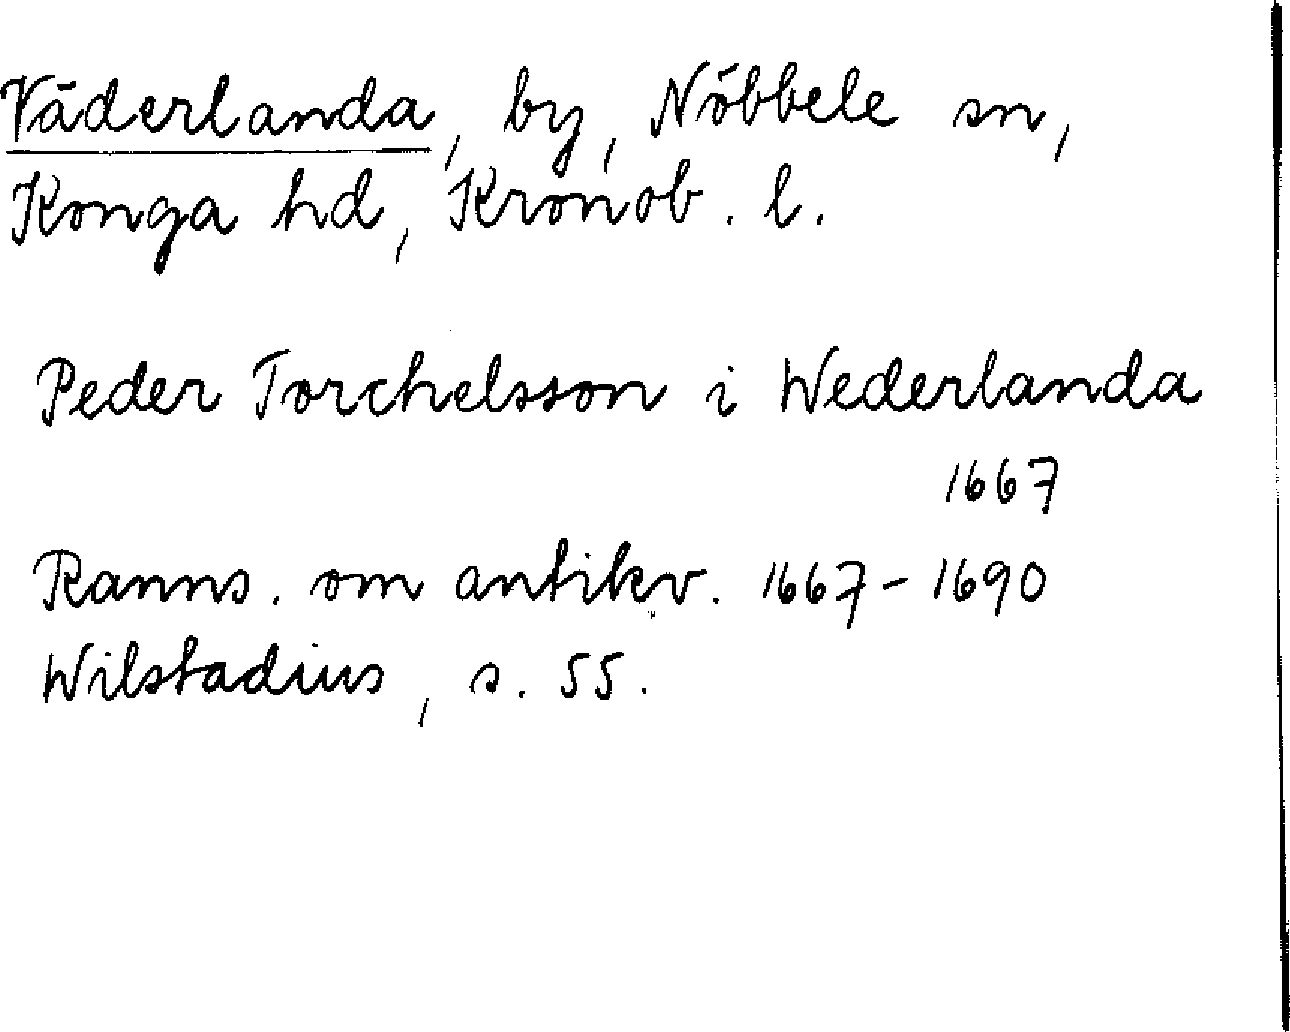 Väderlanda, by, Nöbbele sn,
Konga hd, Kronob. l.
Peder Torchelsson i Wederlanda
1667
Ranns. om antikv. 1667-1690
Wilstadius, s. 55.